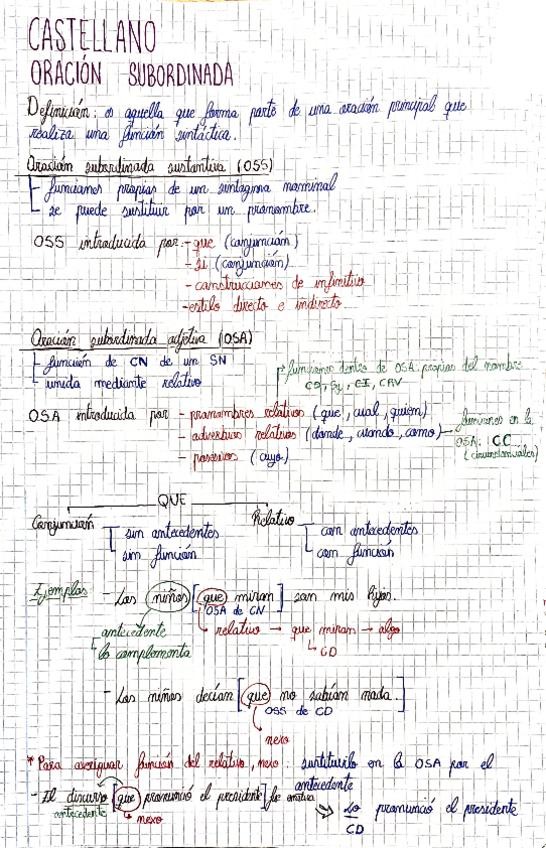 CASTELLANO
ORACIÓN SUBORDINADA
Definición: es aquella que forma parte de una oración principal que
realiza una función sintáctica.
Oración subordinada sustantiva (OSS)
funciones propias de un sintagma nominal
se puede sustituir por un pronombre.
OSS introducida por: - que (conjunción)
- si (conjunción)
- construcciones de infinitivo
- estilo directo e indirecto
Oración subordinada adjetiva (OSA)
función de CN de un SN
unida mediante relativo
funciones dentro de OSA propias del nombre
CD, Sj, CI, CRV
OSA introducida por - pronombres relativos (que, cual, quien)
- adverbios relativos (donde, cuando, como) → funciones en la
OSA: CC
(circunstanciales)
- posesivos (cuyo)
QUE
Conjunción
Relativo
sin antecedentes
sin función
con antecedentes
con función
Ejemplos - Los niños [que miran] son mis hijos.
OSA de CN
relativo → que miran → algo
CD
antecedente
lo complementa
- Los niños decían [que no sabían nada.]
OSS de CD
nexo
* Para averiguar función del relativo, nexo: sustituirlo en la OSA por el
antecedente
- El discurso [que pronunció el presidente] fue
antecedente
nexo
Lo pronunció el presidente
CD